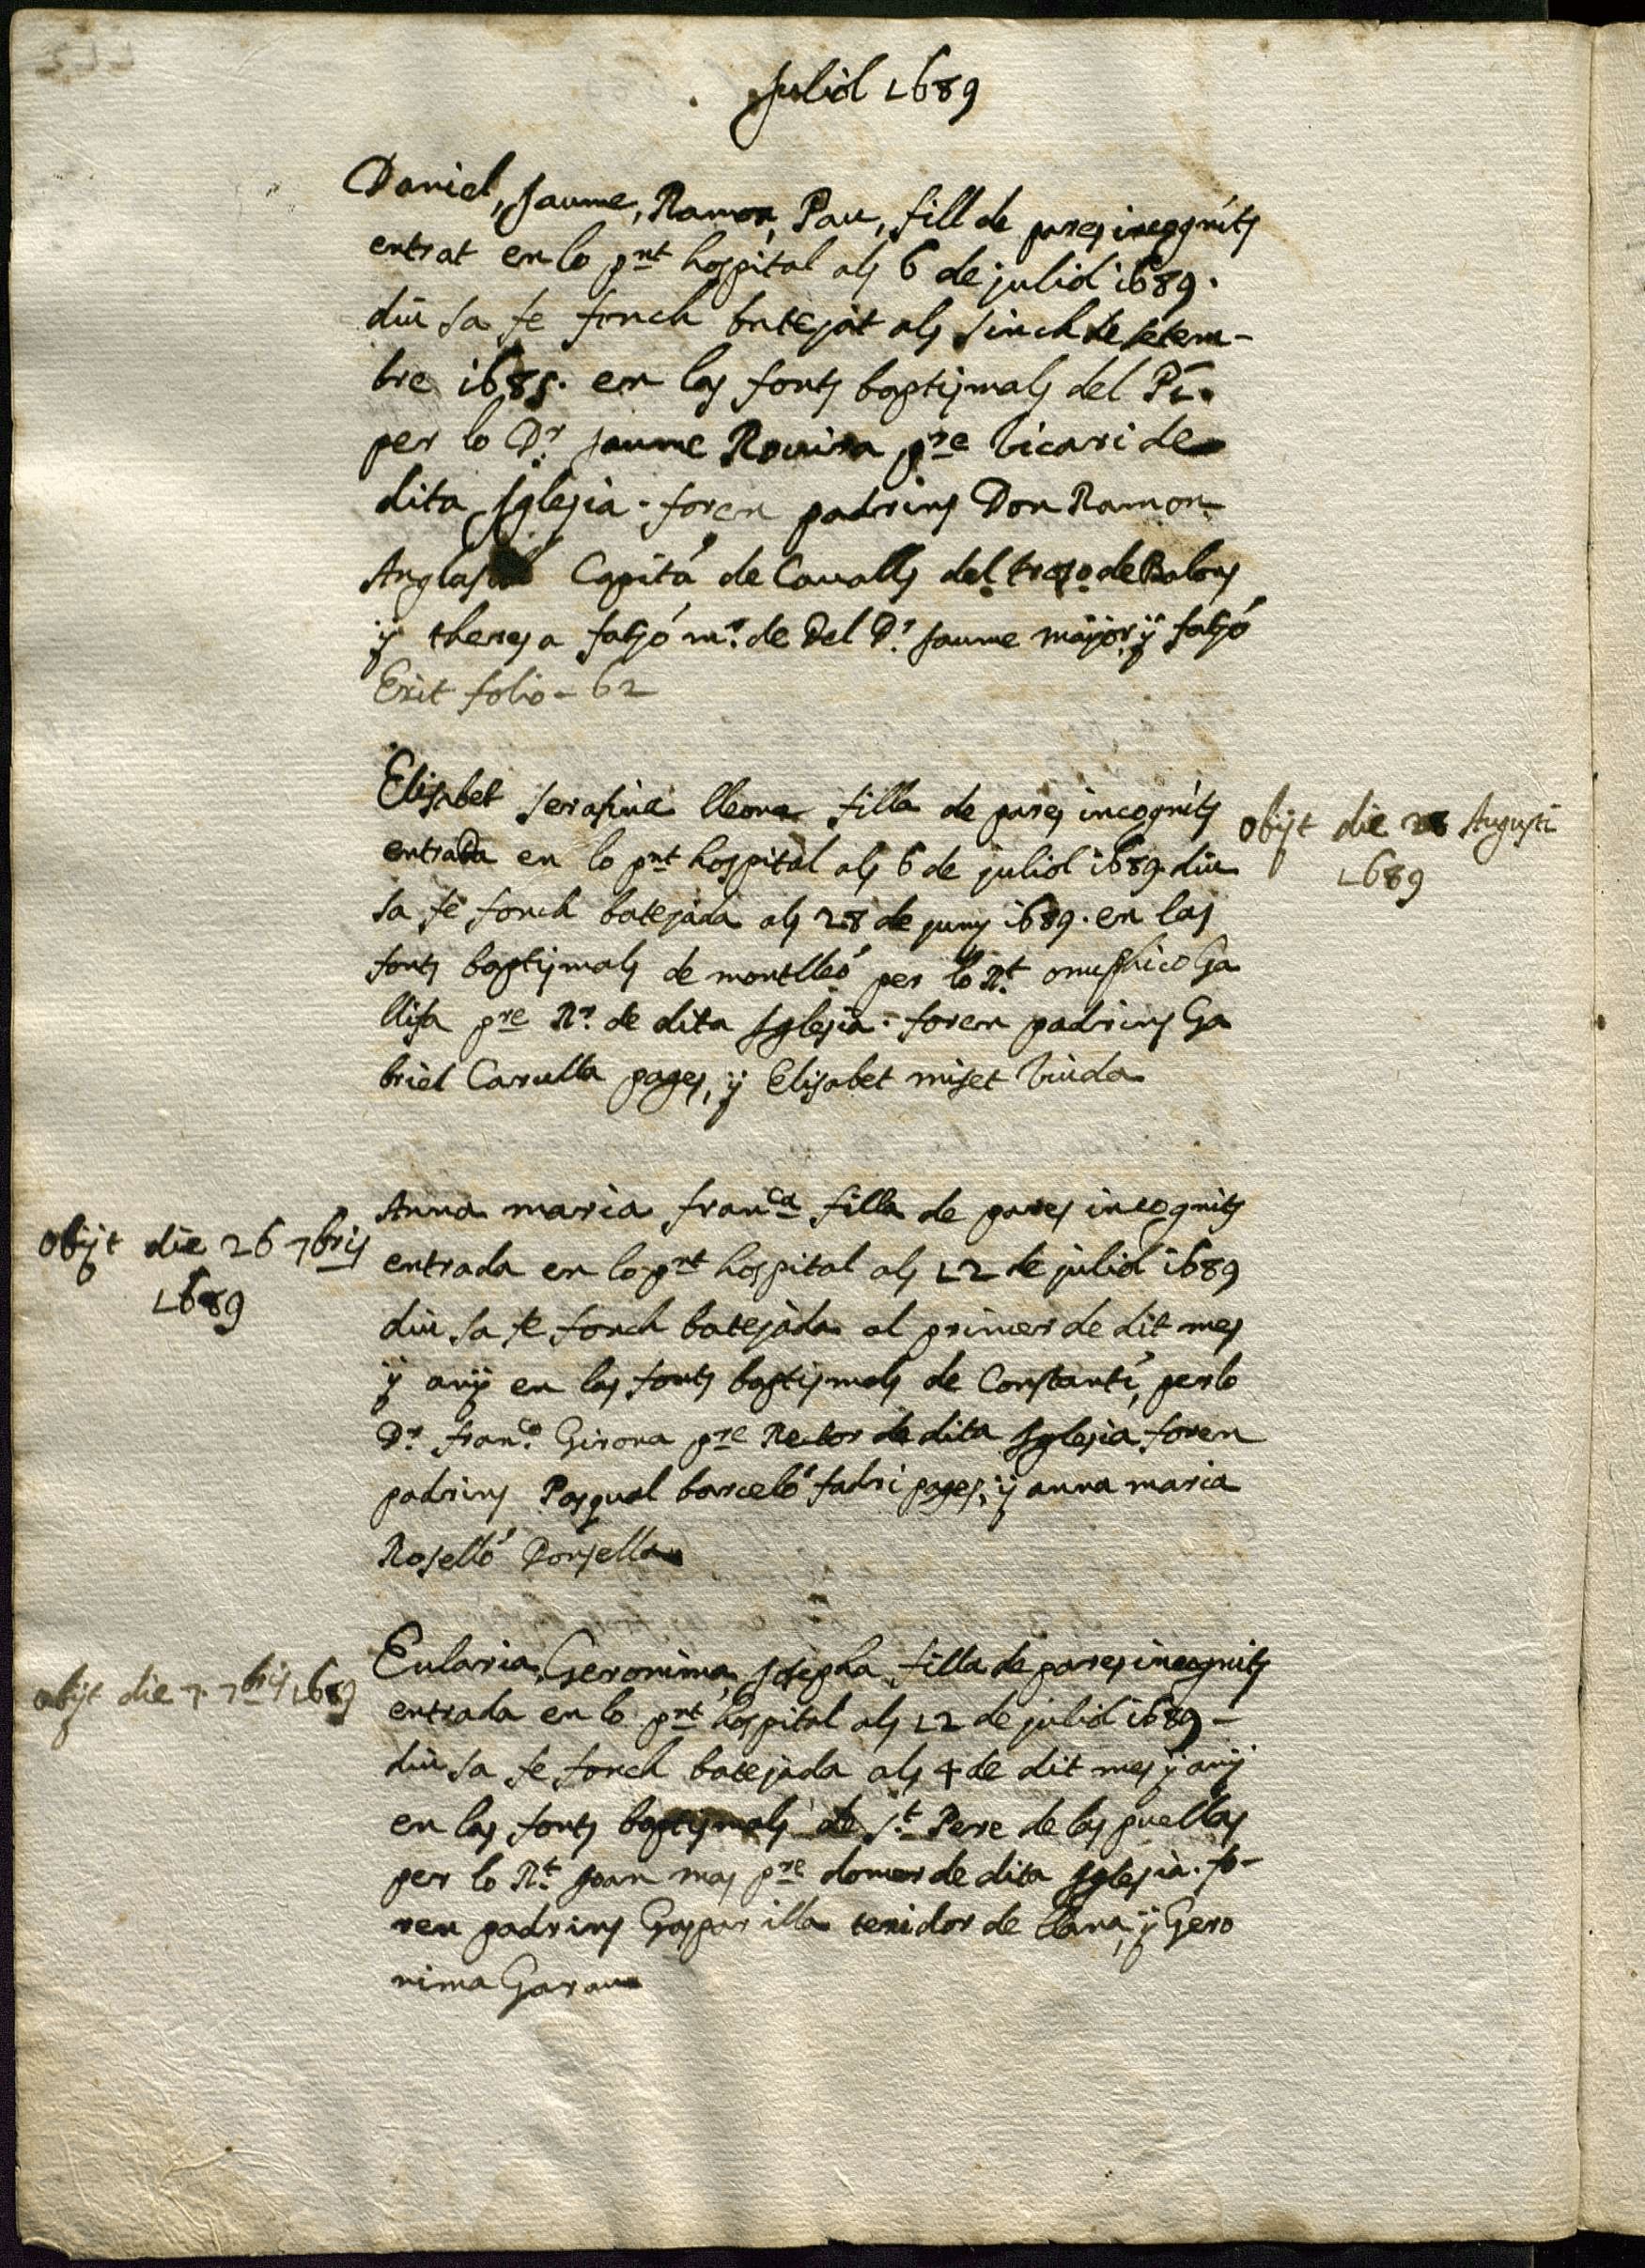 Juliol 1689
Daniel, Jaume, Ramon, Pau, fill de pares incognits
entrat en lo pnt hospital als 6 de juliol 1689.
diu sa fe fonch batejat als sinch de setem-
bre 1685. en las fonts baptismals del Pi.
per lo Dr Jaume Rovira pre vicari de
dita Iglesia. foren padrins Don Ramon
Capitá de Cavalls del
y theresa fatjó mr. de Del Dr. Jaume major y fatjó
Exit folio - 62
Elisabet serafina lleona filla de pares incognits
entrada en lo pnt hospital als 6 de juliol 1689. diu
sa fe fonch batejada als 28 de juny 1689. en las
fonts baptismals de montlleó per lo Rt. onuphrio Ga
llisa pre Rr. de dita Iglesia. foren padrins Ga
briel Carulla pages, y Elisabet miset viuda
obijt die Augusti
1689
Anna maria franca filla de pares incognits
entrada en lo pnt hospital als 12 de juliol 1689
diu sa fe fonch batejada al primer de dit mes
y any en las fonts baptismals de Constantí, per lo
Dr. franco. Girona pre Rector de dita Iglesia foren
padrins Pasqual barceló fadri pages, y anna maria
Roselló Donsella
obijt die 26 7bris
1689
Eularia, Geronima, Josepha filla de pares incognits
entrada en lo pnt hospital als 12 de juliol 1689 -
diu sa fe fonch batejada als 4 de dit mes y any
en las fonts baptismals de St. Pere de las puellas
per lo Rt. Joan mas pre domer de dita Iglesia. fo-
ren padrins Gaspar illa texidor de llana, y Gero
nima
obijt die 7. 7bris 1689